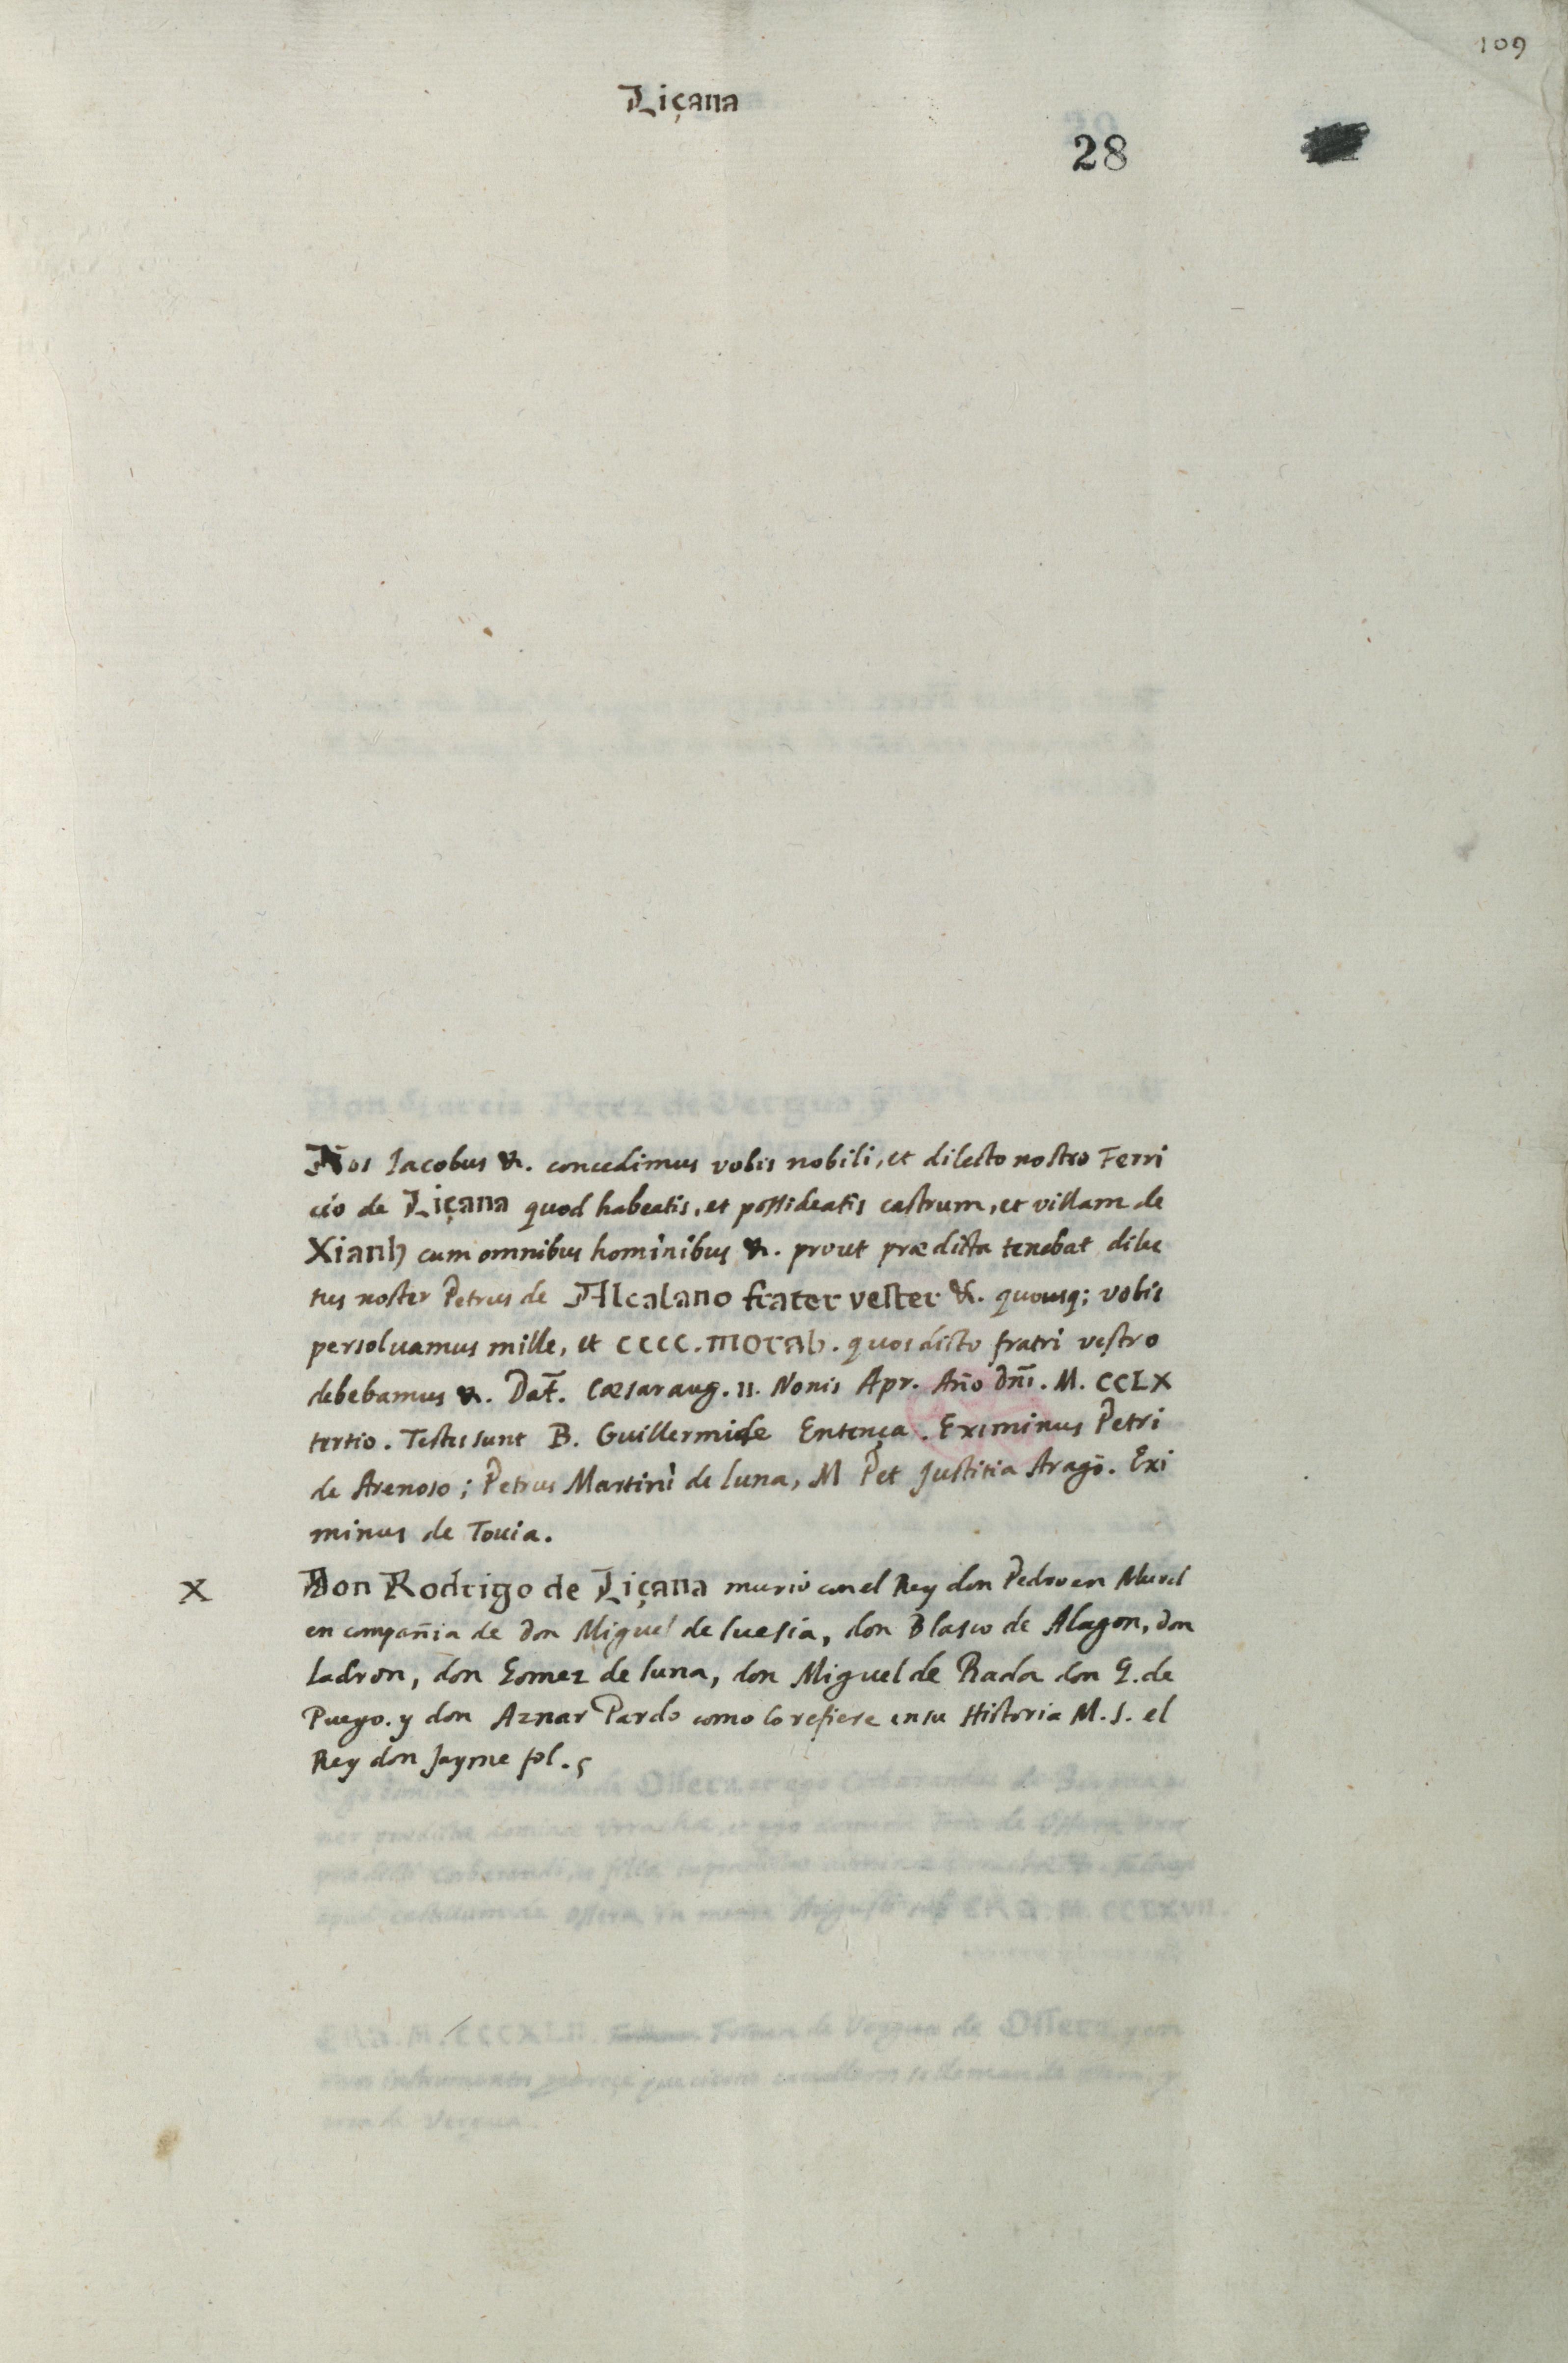 109
Liçana
28
Nos Jacobus &. concedimus vobis nobili, et dilecto nostro Ferri
cio de Liçana quod habeatis, et possideatis castrum, et villam de
Xianh cum omnibus hominibus &. prout prædicta tenebat dilec
tus noster Petrus de Alcalano frater vester &. quousq; vobis
persoluamus mille, et CCCC. morab. quos dicto fratri vestro
debebamus &. Dat̃. Cæsaraug. II. Nonis Apr. Año dñi. M. CCLX
tertio. Testes sunt B. Guillermi de Entença. Eximinus Petri
de Arenoso; Petrus Martini de luna, M Pet Justitia Aragõ. Exi
minus de Touia.
X Don Rodrigo de Liçana murio con el Rey don Pedro en Murel
en compañia de don Miguel de luesia, don Blasco de Alagon, don
ladron, don Gomez de luna, don Miguel de Rada don G. de
Pueyo. y don Aznar Pardo como lo refiere en su Historia M. S. el
Rey don Jayme fol. 5